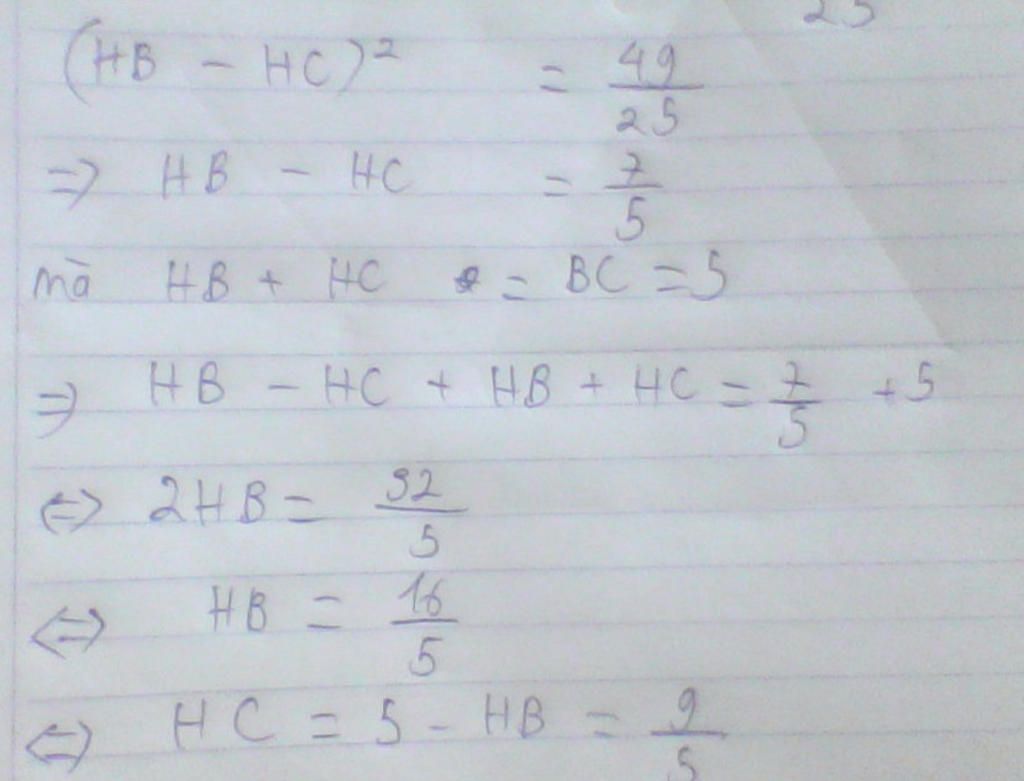 25
(HB - HC)² = 49/25
=> HB - HC = 7/5
mà HB + HC = BC = 5
=> HB - HC + HB + HC = 7/5 + 5
<=> 2HB = 32/5
<=> HB = 16/5
<=> HC = 5 - HB = 9/5